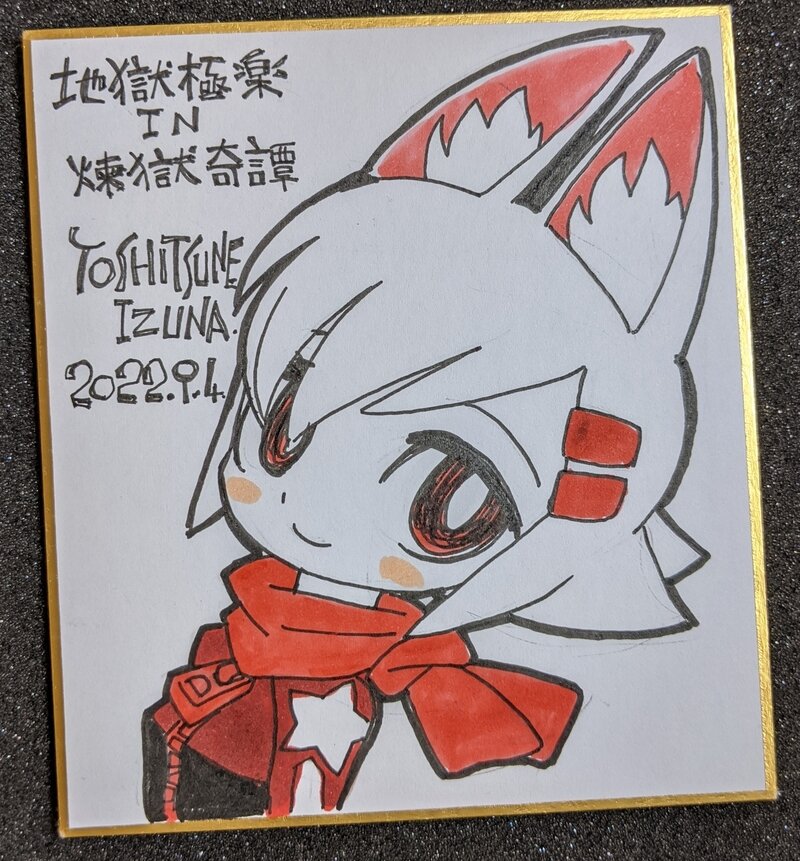 地獄極楽
IN
煉獄奇譚
YOSHITSUNE
IZUNA.
2022.9.4.